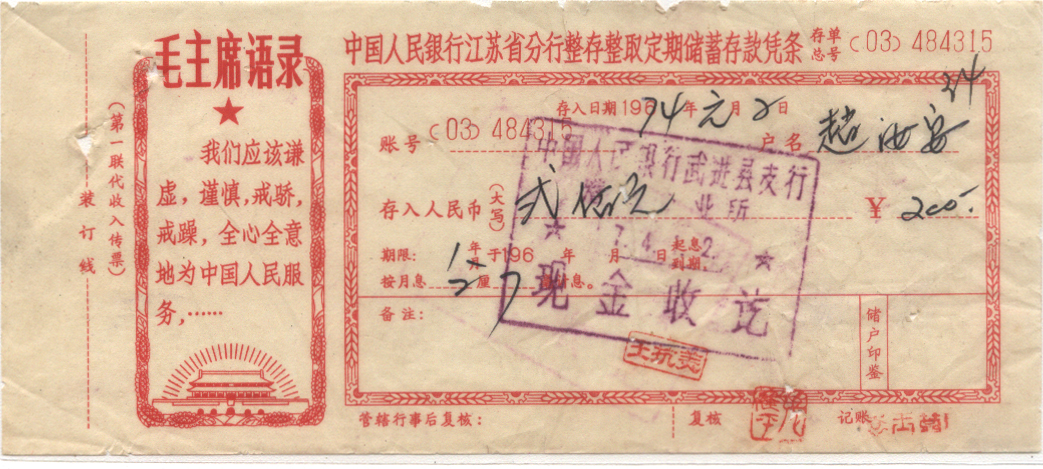 毛主席语录
我们应该谦
虚，谨慎，戒骄，
戒躁，全心全意
地为中国人民服
务，……
（第一联代收入传票）
装订线
中国人民银行江苏省分行整存整取定期储蓄存款凭条 存单总号 (03) 484315
24
存入日期196 74年元月2日
账号 (03) 484315 户名 赵
存入人民币（大写） 弍佰元 ¥ 200.
期限： 1年月于196 年 月 日起息到期。
按月息 厘 息。
备注：
储户印鉴
管辖行事后复核： 复核 记账
中国人民银行武进县支行
业所
★ 74. 2. ★
现金收讫